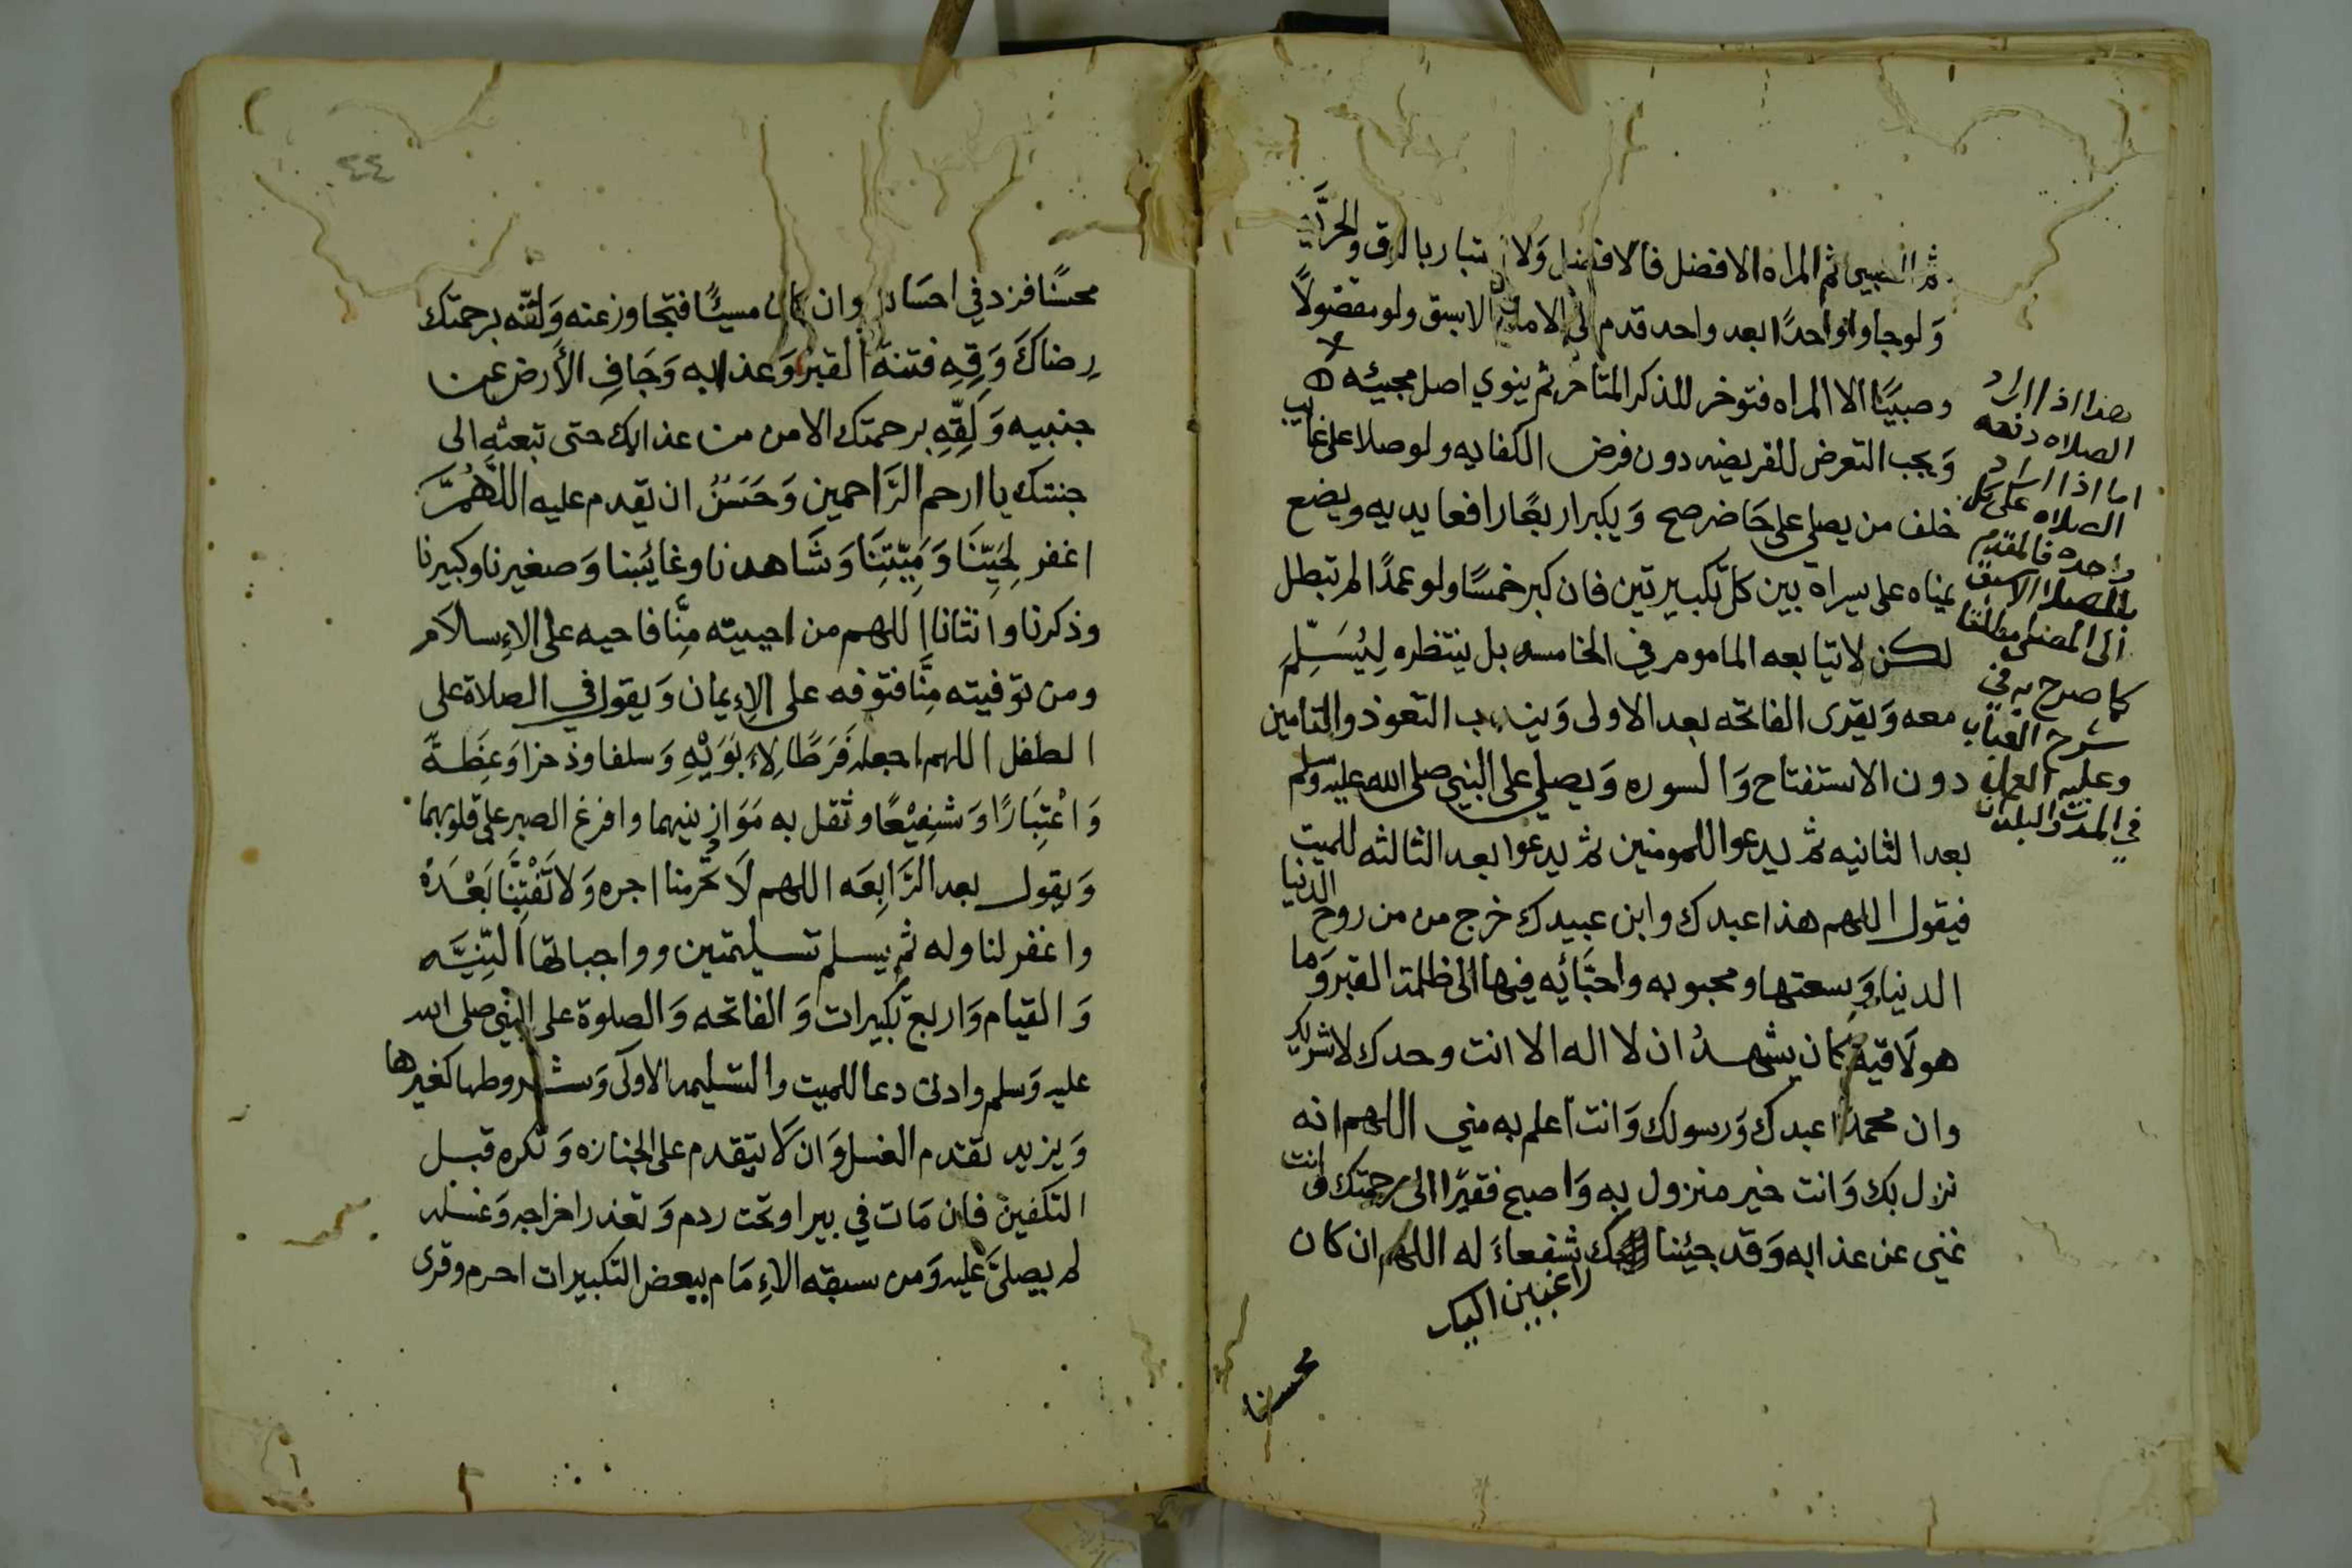 ثم الصبي ثم المراه الافضل فالافضل وَلا اعتبار بالرق والحرَّيه
وَلو جاوا واحدًا بعد واحد قدم الى الامام الاسبق ولو مفضولاً
وصبيًا الا المراه فتوخر للذكر المتاخر ثم ينوي اصل مجيئه
وَيجب التعرض للفريضه دون فرض الكفايه ولو صلا على غايب
خلف من يصلي على حَاضر صح وَيكبر اربعًا رافعا يديه ويضع
يمناه على يسراه بين كل تكبيرتين فان كبر خمسًا ولو عمدًا لم تبطل
لكن لا يتابعه الماموم في الخامسه بل ينتظره لِيُسَلِّمِ
معه وَيقرى الفاتحه بعد الاولى وَيندب التعوذ والتامين
دون الاستفتاح وَالسوره وَيصلي على النبي صلى الله عليه وسلم
بعد الثانيه ثم يدعوا للمومنين ثم يدعوا بعد الثالثه للميت
فيقول اللهم هذا عبدك وابن عبيدك خرج من من روح الدنيا
الدنيا وَسعتها ومحبوبه واحبَّائه فيها الى ظلمة القبر وَما
هو لَاقيه كان يشهدُ ان لا اله الا انت وحدك لا شريك لك
وان محمدًا عبدك وَرسولك وَانت اعلم به مني اللهم انه
نزل بك وَانت خير منزول به وَاصبح فقيرًا الى رحمتك وانت
غني عن عذابه وَقد جئناك شفعاءَ له اللهم ان كان
راغبين اليك
محسنا
هذا اذا اراد
الصلاه دفعه
اما اذا اراد
الصلاه على كل
واحده فالمقدم
للصلا الاسبق
الى المصلى مطلقا
كما صرح به في
شرح العباب
وعليه العمل
في المدن والبلدان
٤٤
محسنًا فزد في احسَانه وان كان مسيئًا فتجاوز عنه وَلقّه برحمتك
رِضاكَ وَقِهِ فتنة القبر وَعذابه وَجَافِ الأَرض عن
جنبيه وَلَقِّهِ برحمتك الامن من عذابك حتى تبعثه الى
جنتك يا ارحم الرَّاحمين وَحَسَنُ ان يقدم عليه اللَّهُمَّ
اغفر لِحَيِّنَا وَمَيِّتِنَا وَشَاهدنا وغائبنا وَصغيرنا وكبيرنا
وذكرنا وانثانا اللهم من احييته مِنَّا فاحيه على الإِسلَام
ومن توفيته مِنَّا فتوفه على الإِيمان وَيقول في الصلاة على
الطفل اللهم اجعله فَرَطًا لِاَبَوَيْهِ وَسلفا وذخرا وَعِظةً
وَاعْتِبَارًا وَشفِيْعًا وثقل به مَوَازينهما وافرغ الصبر على قلوبهما
وَيقول بعد الرَّابِعَه اللهم لَا تحْرمنا اجره وَلَا تَفْتِنَّا بَعْدَهْ
واغفر لنا وله ثم يسلم تسليمتين وواجباتها النِّيَّه
وَالقيام وَاربع تكبيرات وَالفاتحه وَالصلوة على النبي صلى الله
عليه وَسلم وادنى دعا للميت والتسليمه الاولَى وَشروطها كغيرها
وَيزيد تقدم الغسل وَان لَا يتقدم على الجنازه وَتكره قبل
التكفين فان مَات في بير او تحت ردم وَتعذر اخراجه وَغسله
لم يصلَّ عليه وَمن سبقه الاِمَام ببعض التكبيرات احرم وقرى